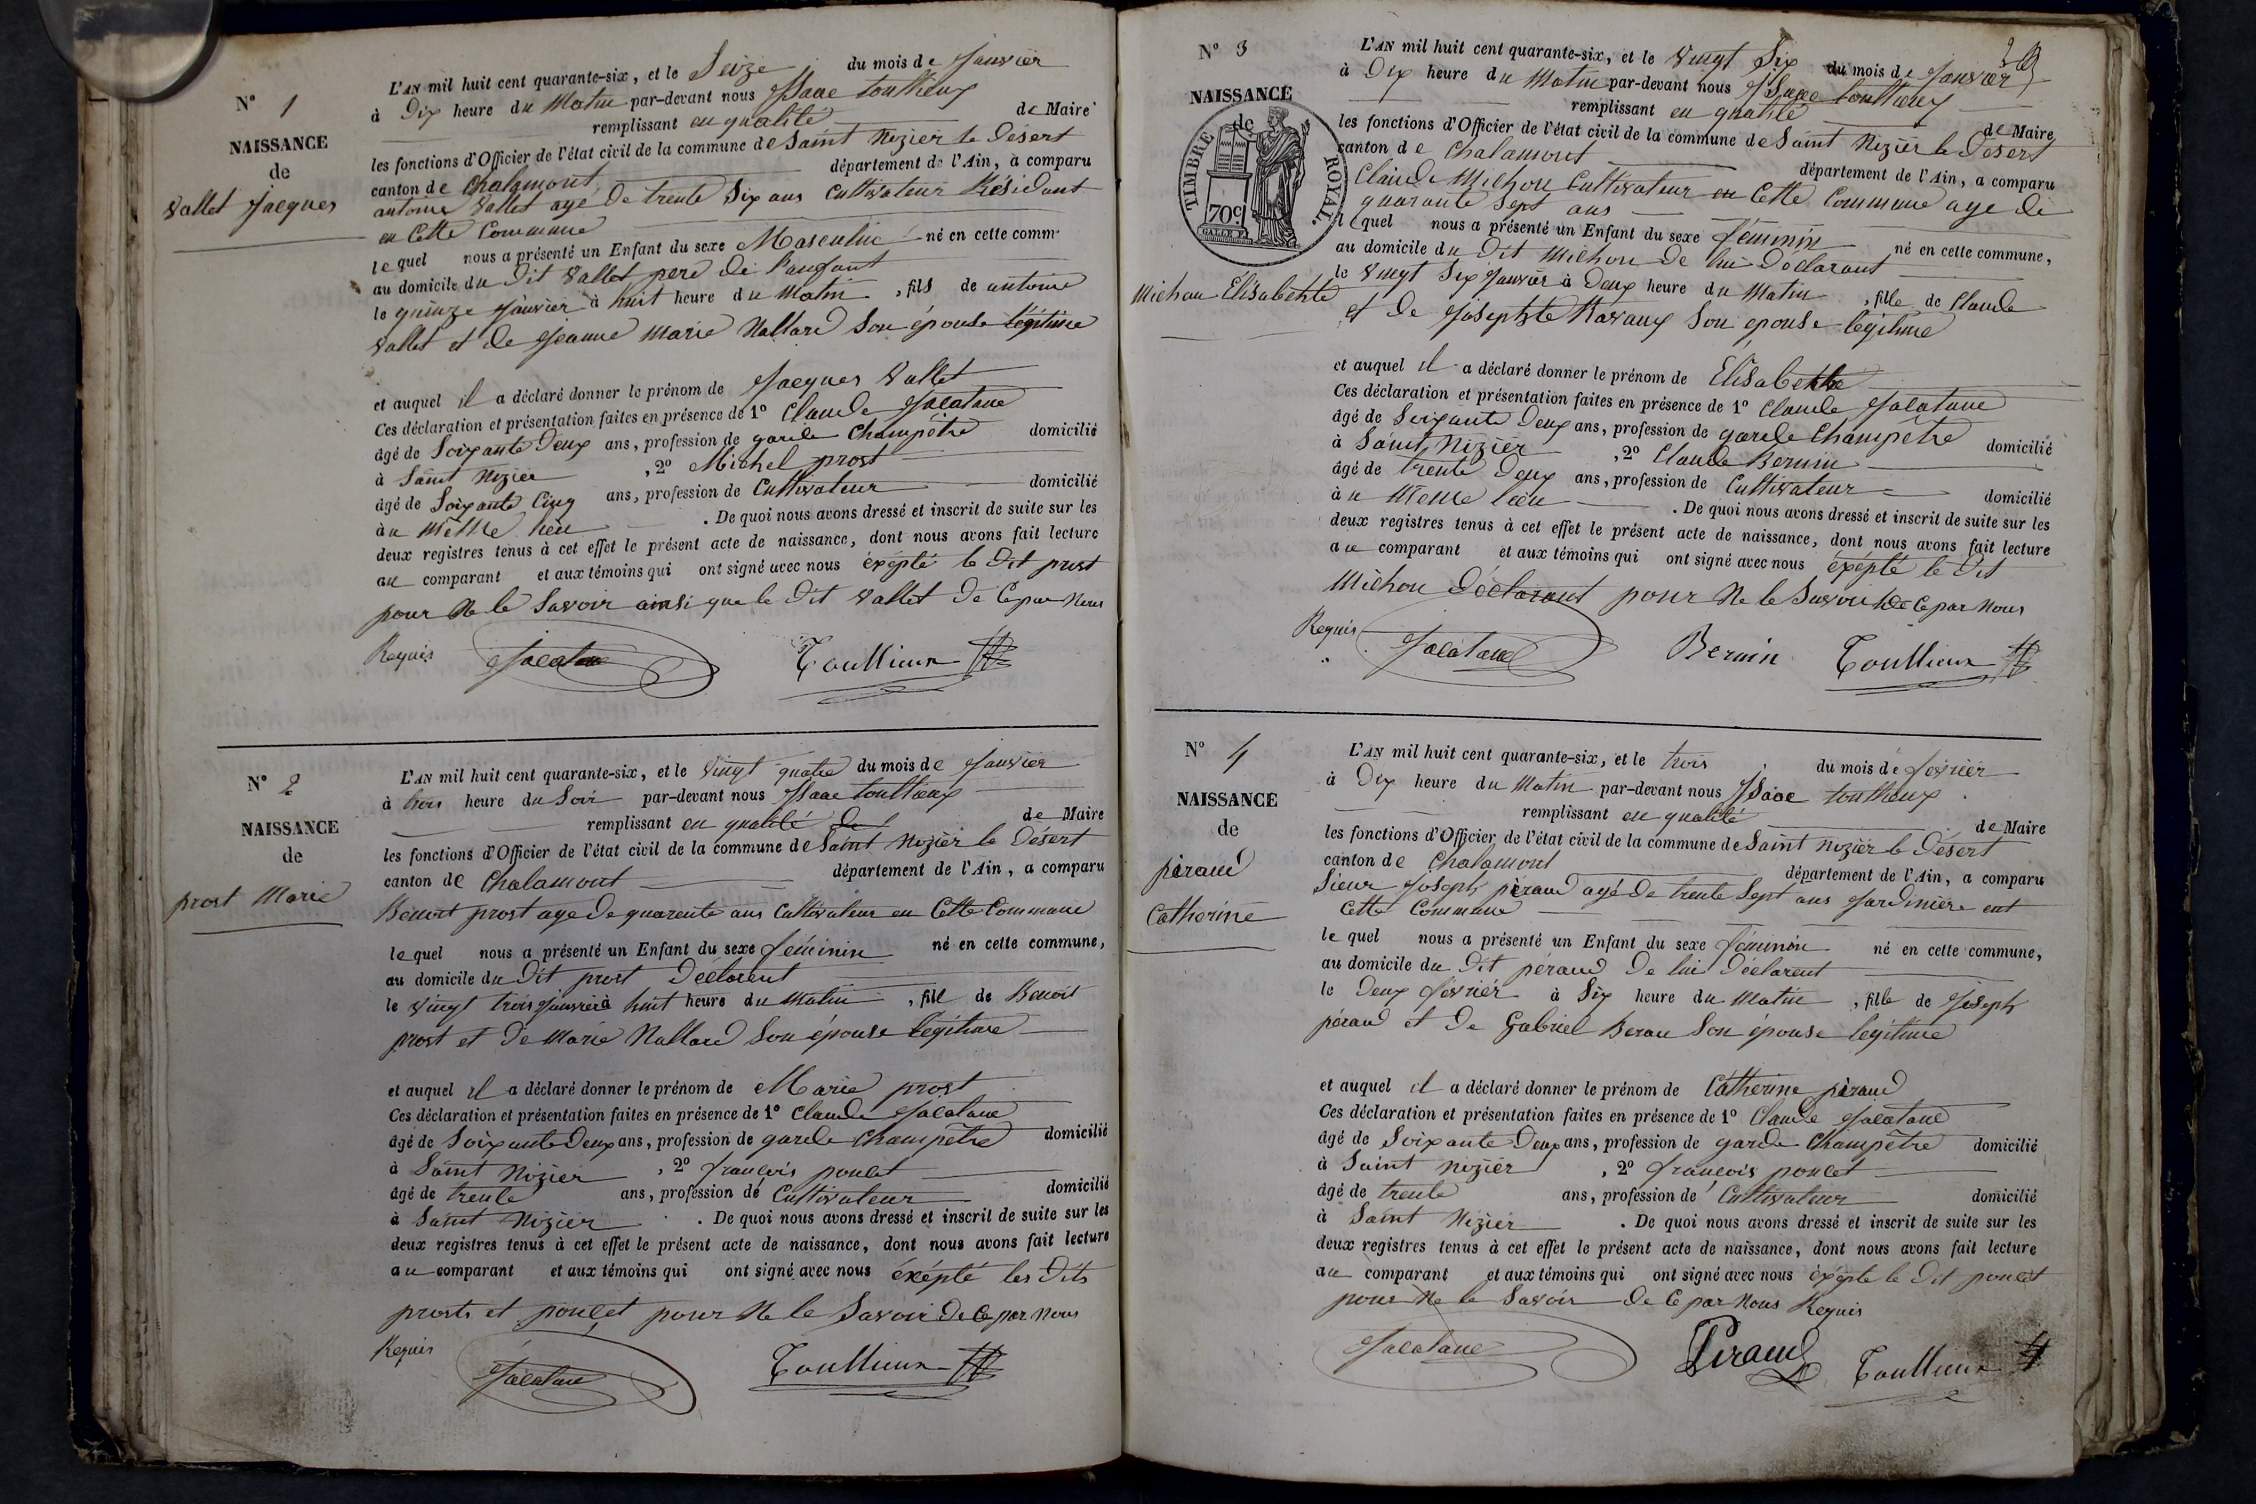 N° 1
NAISSANCE
de
Vallet Jacques
L'AN mil huit cent quarante-six, et le Seize du mois de Janvier
à Dix heure du Matin par-devant nous Isaac toullieux
remplissant en qualité de Maire
les fonctions d'Officier de l'état civil de la commune de Saint Nizier le Désert
canton de Chalamont département de l'Ain, a comparu
antoine Vallet age De trente Six ans Cultivateur Résidant
en Cette Commune
le quel nous a présenté un Enfant du sexe Masculin né en cette comm
au domicile du Dit Vallet pere De l'anfant
le quinze Janvier à huit heure du Matin, fils de antoine
Vallet et de Jeanne Marie Nallard Son épouse légitime
et auquel il a déclaré donner le prénom de Jacques Vallet
Ces déclaration et présentation faites en présence de 1° Claude Jacatane
âgé de Soixante Deux ans, profession de garde Champétre domicilié
à Saint Nizier, 2° Michel prost
âgé de Soixante Cinq ans, profession de Cultivateur domicilié
au Même lieu. De quoi nous avons dressé et inscrit de suite sur les
deux registres tenus à cet effet le présent acte de naissance, dont nous avons fait lecture
au comparant et aux témoins qui ont signé avec nous éxépté le Dit prost
pour Ne le Savoir ainsi que le Dit Vallet De Ce par Nous
Requis Jacatane Toullieux
N° 2
NAISSANCE
de
prost Marie
L'AN mil huit cent quarante-six, et le Vingt quatre du mois de Janvier
à trois heure du Soir par-devant nous Isaac toullieux
remplissant en qualité de de Maire
les fonctions d'Officier de l'état civil de la commune de Saint Nizier le Désert
canton de Chalamont département de l'Ain, a comparu
Benoit prost age De quarente ans Cultivateur en Cette Commune
le quel nous a présenté un Enfant du sexe féminin né en cette commune,
au domicile du Dit prost Déclarent
le Vingt trois Janvier à huit heure du Matin, fill de Benoit
prost et De Marie Nallard Son épouse légitime
et auquel il a déclaré donner le prénom de Marie prost
Ces déclaration et présentation faites en présence de 1° Claude Jacatane
âgé de Soixante Deux ans, profession de garde Champétre domicilié
à Saint Nizier, 2° françois poncet
âgé de trente ans, profession de Cultivateur domicilié
à Saint Nizier. De quoi nous avons dressé et inscrit de suite sur les
deux registres tenus à cet effet le présent acte de naissance, dont nous avons fait lecture
au comparant et aux témoins qui ont signé avec nous éxépté les Dits
prosts et poncet pour Ne le Savoir De Ce par Nous
Requis Jacatane Toullieux
N° 3
NAISSANCE
de
TIMBRE ROYAL.
70c.
Michon Elisabethte
L'AN mil huit cent quarante-six, et le Vingt Six du mois de Janvier
à Dix heure du Matin par-devant nous Isaac toullieux
remplissant en qualité de Maire
les fonctions d'Officier de l'état civil de la commune de Saint Nizier le Désert
canton de Chalamont département de l'Ain, a comparu
Claude Michon Cultivateur en Cette Commune age De
quarante Sept ans
lequel nous a présenté un Enfant du sexe féminin né en cette commune,
au domicile du Dit Michon De lui Déclarant
le Vingt Six Janvier à Deux heure du Matin, fille de Claude
et De Josephte Ravaux Son épouse légitime
et auquel il a déclaré donner le prénom de Elisabethte
Ces déclaration et présentation faites en présence de 1° Claude Jacatane
âgé de Soixante Deux ans, profession de garde Champétre domicilié
à Saint Nizier, 2° Claude Bernin
âgé de trente Deux ans, profession de Cultivateur domicilié
au Même lieu. De quoi nous avons dressé et inscrit de suite sur les
deux registres tenus à cet effet le présent acte de naissance, dont nous avons fait lecture
au comparant et aux témoins qui ont signé avec nous éxépté le Dit
Michon Déclarant pour Ne le Savoir De Ce par Nous
Requis Jacatane Bernin Toullieux
N° 4
NAISSANCE
de
péraud
Catherine
L'AN mil huit cent quarante-six, et le trois du mois de février
à Dix heure du Matin par-devant nous Isaac toullieux
remplissant en qualité de Maire
les fonctions d'Officier de l'état civil de la commune de Saint Nizier le Désert
canton de Chalamont département de l'Ain, a comparu
Sieur Joseph péraud agé De trente Sept ans Jardinière ent
Cette Commune
le quel nous a présenté un Enfant du sexe féminin né en cette commune,
au domicile du Dit péraud De lui Déclarent
le Deux février à Six heure du Matin, fille de Joseph
péraud et De Gabriel Berau Son épouse légitime
et auquel il a déclaré donner le prénom de Catherine péraud
Ces déclaration et présentation faites en présence de 1° Claude Jacatane
âgé de Soixante Deux ans, profession de garde Champétre domicilié
à Saint Nizier, 2° françois poncet
âgé de trente ans, profession de Cultivateur domicilié
à Saint Nizier. De quoi nous avons dressé et inscrit de suite sur les
deux registres tenus à cet effet le présent acte de naissance, dont nous avons fait lecture
au comparant et aux témoins qui ont signé avec nous éxépte le Dit poncet
pour Ne le Savoir De Ce par Nous Requis
Jacatane Péraud Toullieux